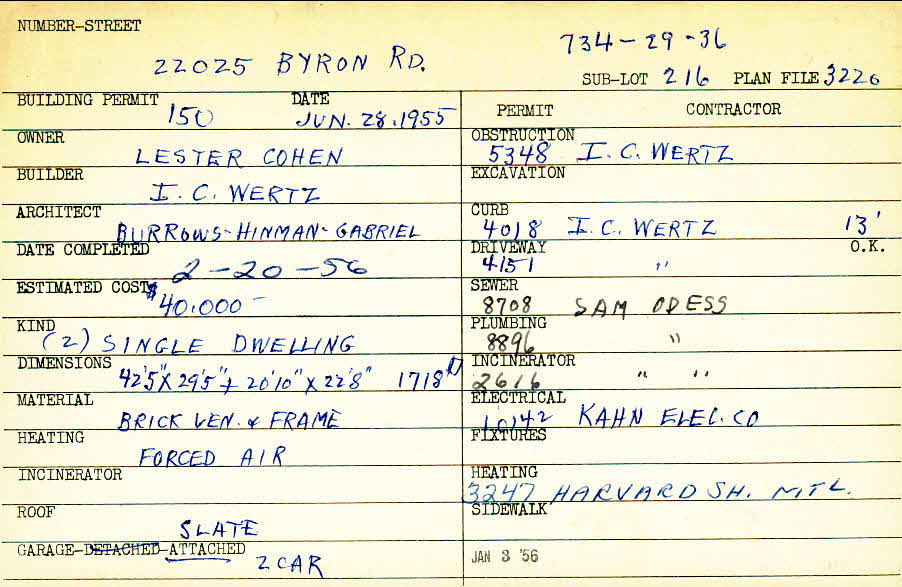 NUMBER-STREET
22025 BYRON RD.
734-29-36
SUB-LOT 216 PLAN FILE 3226
BUILDING PERMIT 150 DATE JUN. 28, 1955
OWNER
LESTER COHEN
BUILDER
I. C. WERTZ
ARCHITECT
BURROWS-HINMAN-GABRIEL
DATE COMPLETED
2-20-56
ESTIMATED COST $40,000-
KIND
(2) SINGLE DWELLING
DIMENSIONS
42'5" X 29'5" + 20'10" X 22'8" 1718
MATERIAL
BRICK VEN. & FRAME
HEATING
FORCED AIR
INCINERATOR
ROOF
SLATE
GARAGE-DETACHED-ATTACHED
2 CAR
PERMIT CONTRACTOR
OBSTRUCTION
5348 I. C. WERTZ
EXCAVATION
CURB
4018 I. C. WERTZ 13'
DRIVEWAY O.K.
4151 "
SEWER
8708 SAM ODESS
PLUMBING
8896 "
INCINERATOR
2616 " "
ELECTRICAL
10142 KAHN ELEC. CO
FIXTURES
HEATING
3247 HARVARD SH. MTL.
SIDEWALK
JAN 3 '56